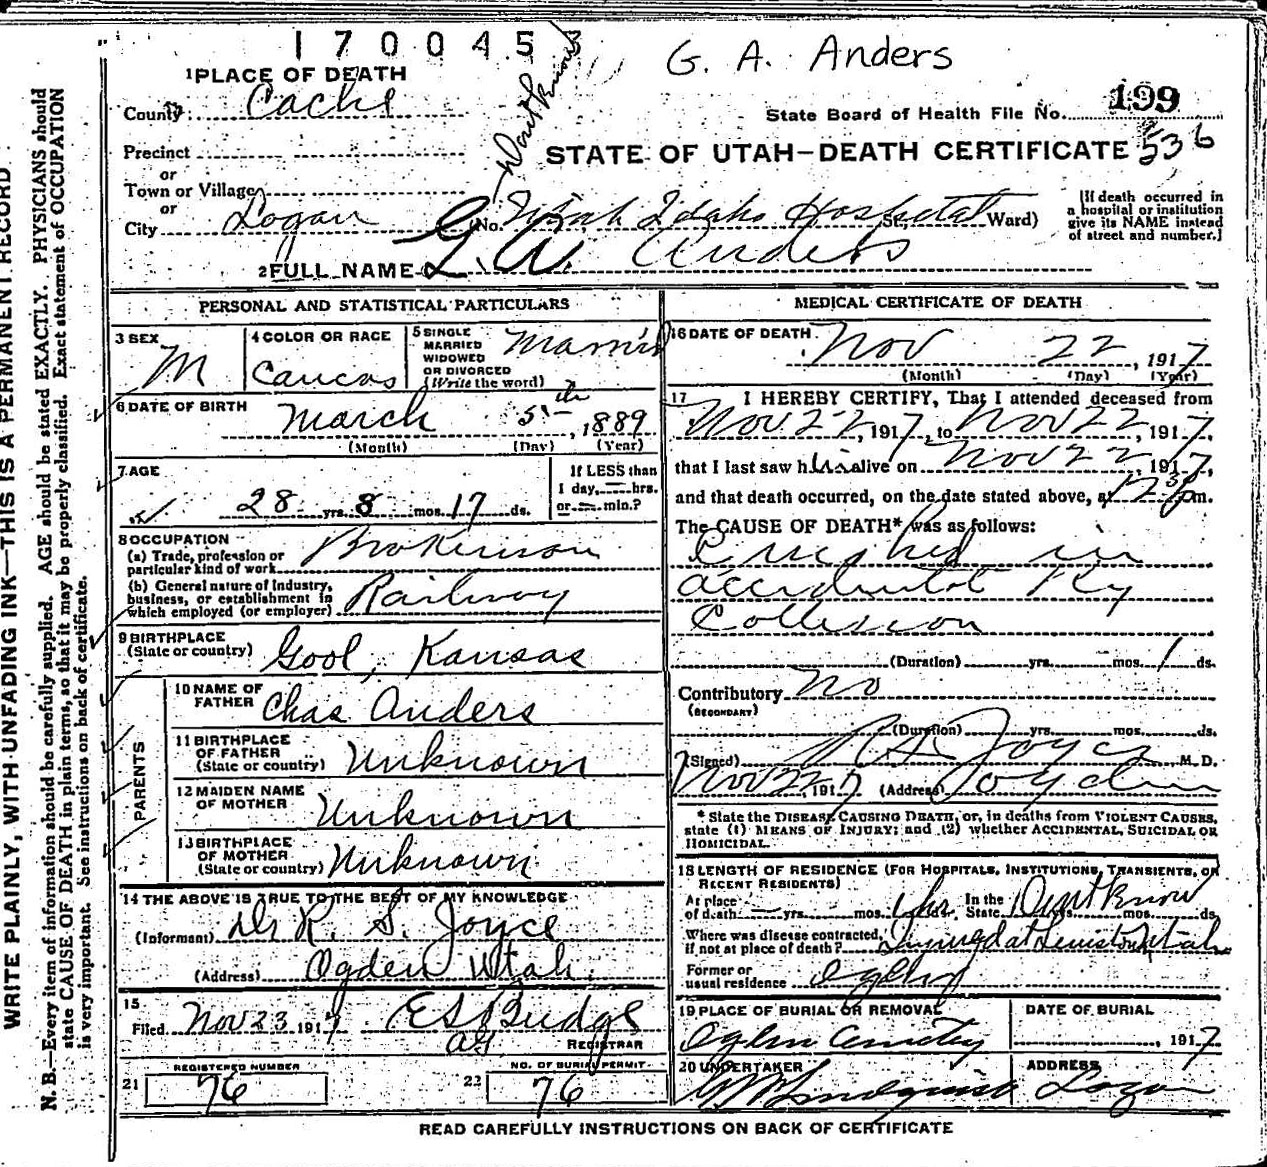 1700453
G. A. Anders
1 PLACE OF DEATH
County Cache
Dont know
State Board of Health File No. 199
536
Precinct
or
Town or Village
or
City Logan
STATE OF UTAH—DEATH CERTIFICATE
(No. Utah Idaho Hospital St., Ward)
[If death occurred in
a hospital or institution
give its NAME instead
of street and number.]
2 FULL NAME G. A. Anders
PERSONAL AND STATISTICAL PARTICULARS
3 SEX
M
4 COLOR OR RACE
Caucas
5 SINGLE
MARRIED
WIDOWED
OR DIVORCED
(Write the word)
Married
6 DATE OF BIRTH
March 5th, 1889
(Month) (Day) (Year)
7 AGE
28 yrs. 8 mos. 17 ds.
If LESS than
1 day, — hrs.
or — min.?
8 OCCUPATION
(a) Trade, profession or
particular kind of work Brakeman
(b) General nature of Industry,
business, or establishment in
which employed (or employer) Railway
9 BIRTHPLACE
(State or country) Gool, Kansas
PARENTS
10 NAME OF
FATHER Chas Anders
11 BIRTHPLACE
OF FATHER
(State or country) Unknown
12 MAIDEN NAME
OF MOTHER Unknown
13 BIRTHPLACE
OF MOTHER
(State or country) Unknown
14 THE ABOVE IS TRUE TO THE BEST OF MY KNOWLEDGE
(Informant) Dr R. S. Joyce
(Address) Ogden Utah.
15
Filed Nov 23 1917 E S Budge
REGISTRAR
21
REGISTERED NUMBER
76
22
NO. OF BURIAL PERMIT
76
MEDICAL CERTIFICATE OF DEATH
16 DATE OF DEATH
Nov 22, 1917
(Month) (Day) (Year)
17 I HEREBY CERTIFY, That I attended deceased from
Nov 22, 1917, to Nov 22, 1917,
that I last saw him alive on Nov 22, 1917,
and that death occurred, on the date stated above, at 12 30 pm.
The CAUSE OF DEATH* was as follows:
Crushed in
accidental Ry
Collision
(Duration) yrs. mos. 1 ds.
Contributory No
(SECONDARY)
(Duration) yrs. mos. ds.
(Signed) R S. Joyce M. D.
Nov 22, 1917 (Address) Ogden
* State the DISEASE CAUSING DEATH, or, in deaths from VIOLENT CAUSES,
state (1) MEANS OF INJURY; and (2) whether ACCIDENTAL, SUICIDAL OR
HOMICIDAL.
18 LENGTH OF RESIDENCE (FOR HOSPITALS, INSTITUTIONS, TRANSIENTS, OR
RECENT RESIDENTS)
At place
of death — yrs. mos. 1 hr ds. In the
State Dont know yrs. mos. ds.
Where was disease contracted,
if not at place of death? Injured at Lewiston, Utah
Former or
usual residence Ogden
19 PLACE OF BURIAL OR REMOVAL
Ogden Cemetery
DATE OF BURIAL
, 1917
20 UNDERTAKER
Lindquist
ADDRESS
Logan
READ CAREFULLY INSTRUCTIONS ON BACK OF CERTIFICATE
WRITE PLAINLY, WITH UNFADING INK—THIS IS A PERMANENT RECORD
N. B.—Every item of information should be carefully supplied. AGE should be stated EXACTLY. PHYSICIANS should
state CAUSE OF DEATH in plain terms, so that it may be properly classified. Exact statement of OCCUPATION
is very important. See instructions on back of certificate.